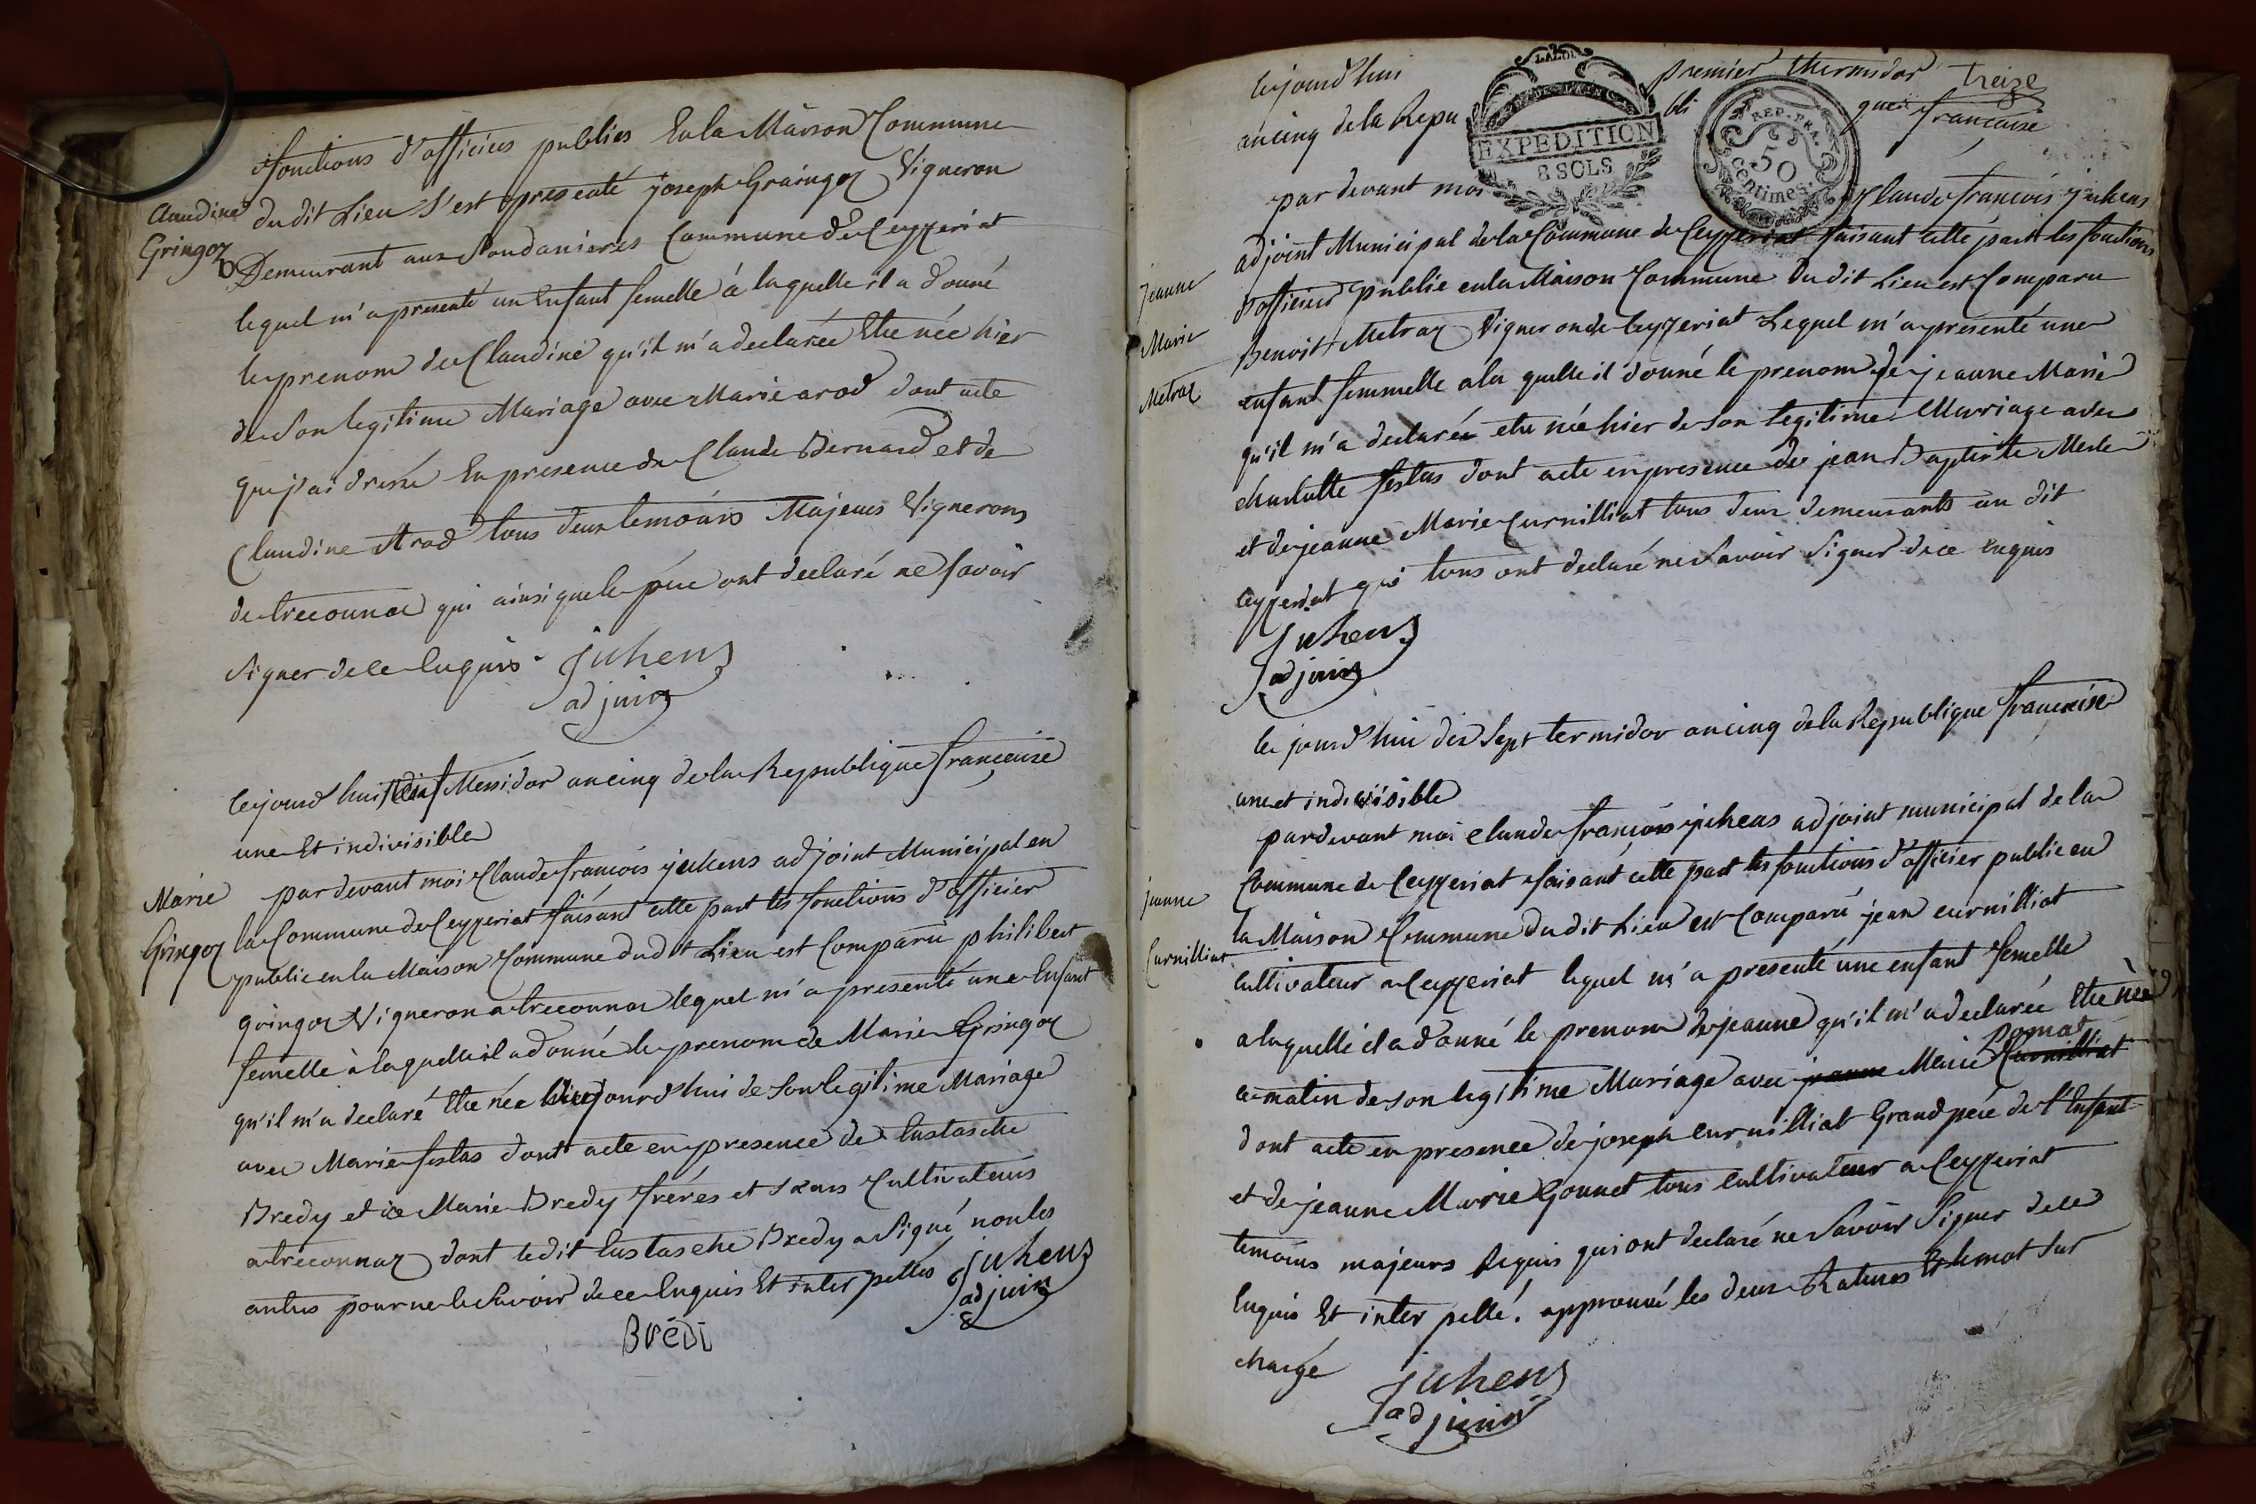 fonctions d'officiers publics En la Maison Commune
Claudine
Gringoz
du dit Lieu s'est presenté joseph Graingoz Vigneron
Demeurant aux Soudanieres Commune de Ceyzeriat
lequel m'a presenté un Enfant femelle à laquelle il a donné
le prenom de Claudine qu'il m'a declarée Etre née hier
de son legitime Mariage avec Marie arod dont acte
que j'ai dressé En presence de Claude Bernard et de
Claudine Arod tous deux temoins Majeurs Vignerons
de treconnas qui ainsi que le pere ont declaré ne savoir
signer de ce Enquis. juhens
adjoint
Le jourd'hui dix Messidor an cinq de la Republique francaise
une Et indivisible
Marie
Gringoz
par devant moi Claude francois juhens adjoint Municipal en
la Commune de Ceyzeriat faisant cette part les fonctions d'officier
public en la Maison Commune du dit Lieu est Comparu philibert
gringoz Vigneron a treconnaz lequel m'a presenté une Enfant
femelle à laquelle il a donné le prenom de Marie Gringoz
qu'il m'a declaré Etre née aujourd'hui de son legitime Mariage
avec Marie festas dont acte en presence de Eustache
Bredy et de Marie Bredy freres et sœurs Cultivateurs
a treconnaz dont le dit Eustache Bredy a signé non les
autres pour ne le savoir de ce Enquis Et interpellés juhens
adjoint
Brédi
Le jourd'hui premier thermidor treize
an cinq de la Republique francaise
LA LOI
EXPEDITION
8 SOLS
REP. FRA.
50
Centimes.
par devant moi Claude francois juhens
adjoint Municipal de la Commune de Ceyzeriat faisant cette part les fonctions
Jeanne
Marie
Metraz
d'officier public en la Maison Commune du dit Lieu est Comparu
Benoit Metraz Vigneron de Ceyzeriat Lequel m'a presenté une
enfant femmelle a la quelle il donné le prenom de jeanne Marie
qu'il m'a declarée etre née hier de son legitime Marriage avec
charlotte festas dont acte en presence de jean Baptiste Merle
et de jeanne Marie Curnilliat tous deux demeurants au dit
ceyzeriat qui tous ont declaré ne savoir signer de ce enquis
juhens
adjoint
le jourd'hui dix sept termidor an cinq de la Republique francaise
une et indivisible
par devant moi claude francois juhens adjoint municipal de la
Commune de Ceyzeriat faisant cette part les fonctions d'officier public en
jeanne
Curnilliat
la Maison Commune du dit Lieu est Comparu jean curnilliat
cultivateur a Ceyzeriat lequel m'a presenté une enfant femelle
a laquelle il a donné le prenom de jeanne qu'il m'a declarée Etre née
ce matin de son legitime Mariage avec jeanne Marie Curnilliat
dont acte en presence de joseph curnilliat Grand pere de l'Enfant
et de jeanne Marie Gonnet tous cultivateur a Ceyzeriat
temoins majeurs Requis qui ont declaré ne savoir signer de ce
Enquis Et interpellé. approuvé les deux Ratures Et le mot sur
chargé
juhens
adjoint